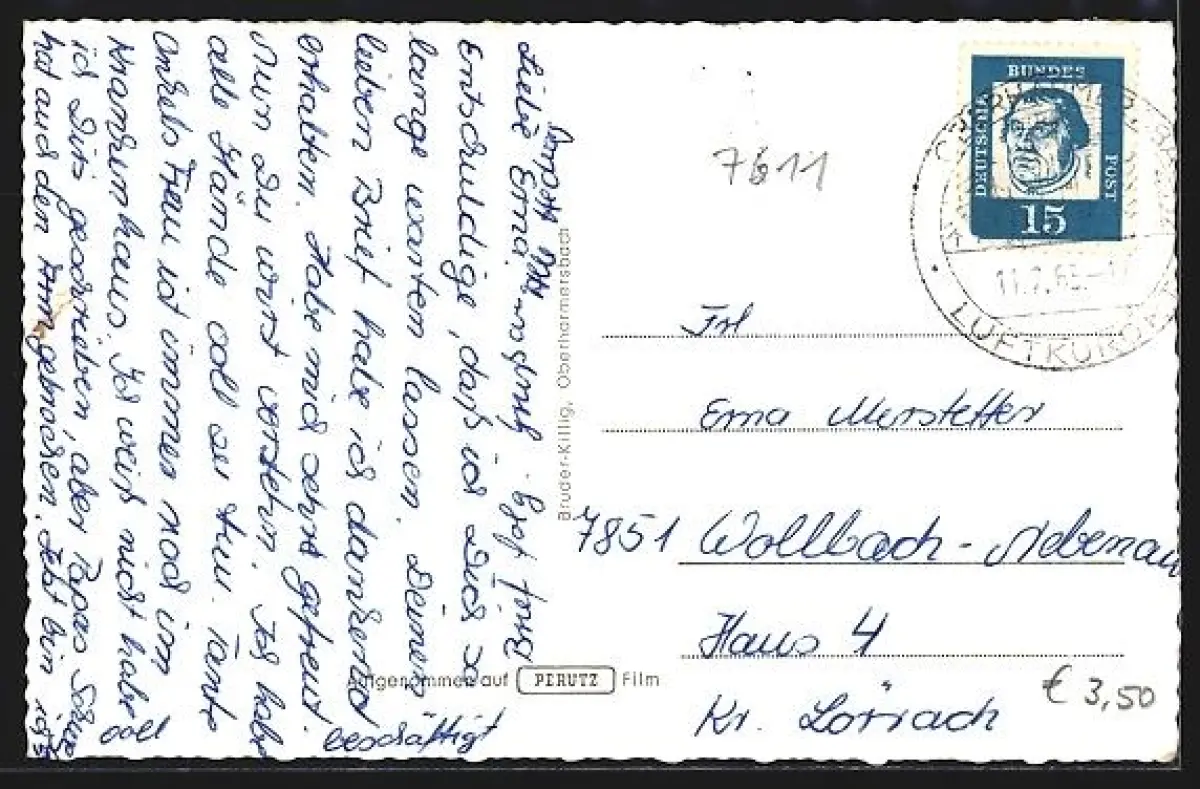 Liebe Erna!
Entschuldige, daß ich Dich so
lange warten lassen. Deinen
lieben Brief habe ich dankend
erhalten. Habe mich sehr gefreut.
Nun Du wirst verstehn. Ich habe
alle Hände voll zu tun. Tante
Onkels Frau ist immer noch im
Krankenhaus. Ich weiß nicht habe
ich Dirs geschrieben, aber Papas
hat auch den Arm gebrochen. Jetzt bin ich
voll
beschäftigt
Bruder-Killig, Oberharmersbach
Aufgenommen auf PERUTZ Film
7611
DEUTSCHE BUNDESPOST
15
LUFTKURORT
Frl
Erna Merstetter
7851 Wollbach-Nebenau
Haus 4
Kr. Lörrach
€ 3,50